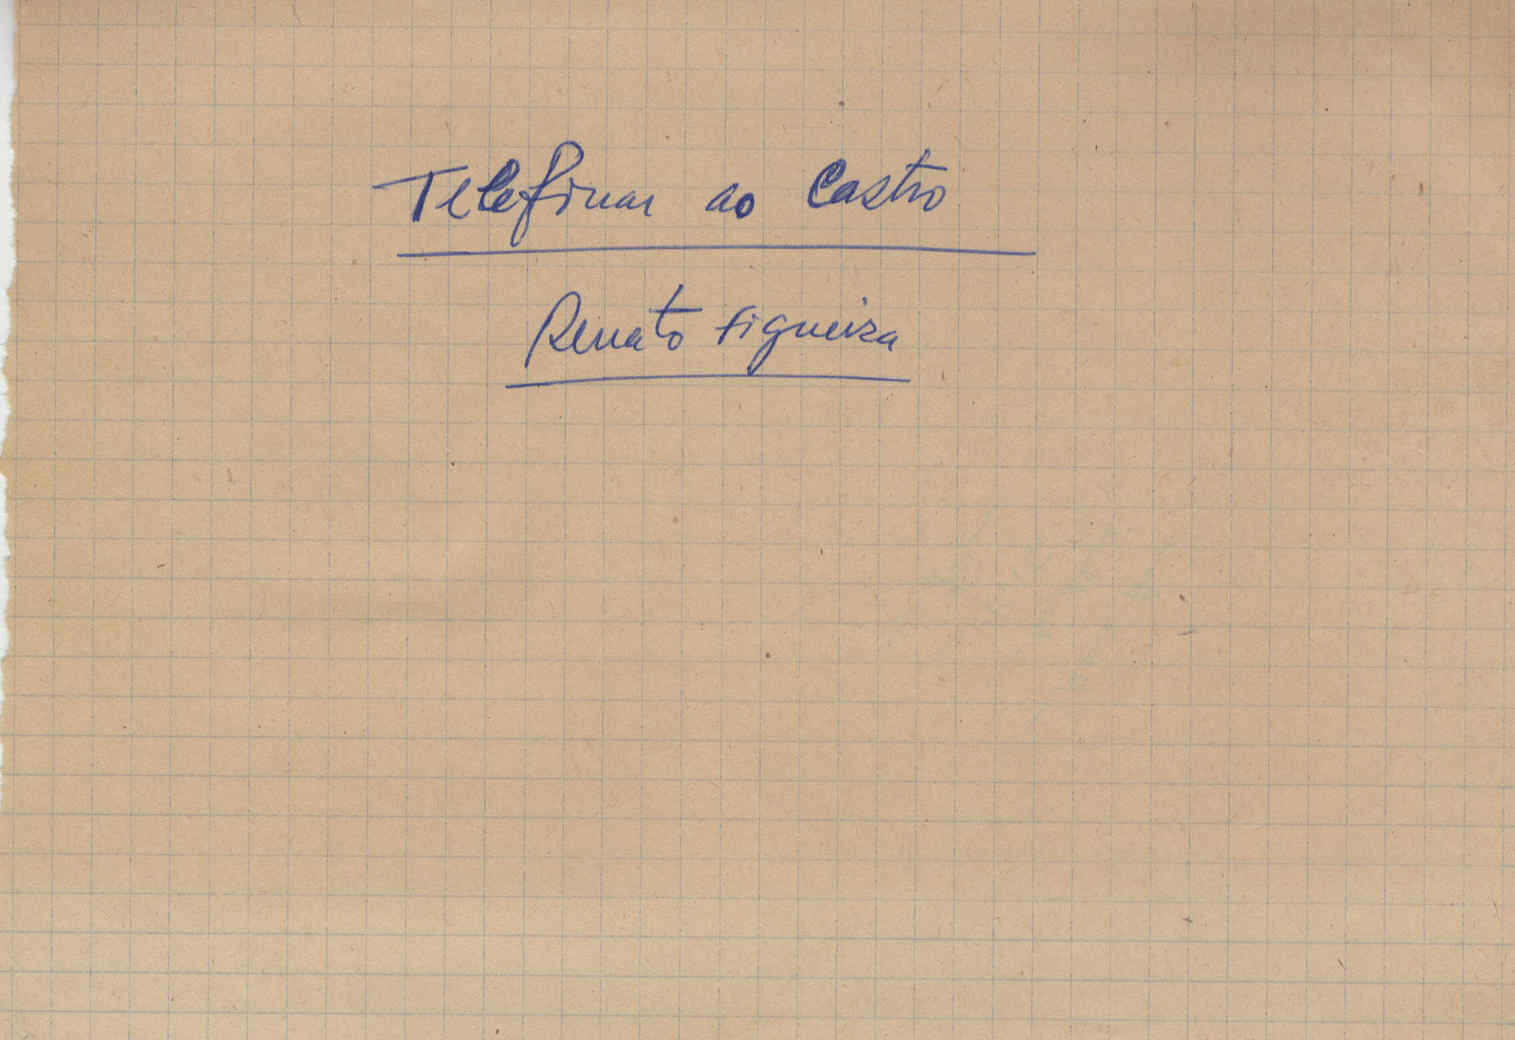 Telefonar ao Castro
Renato Figueira